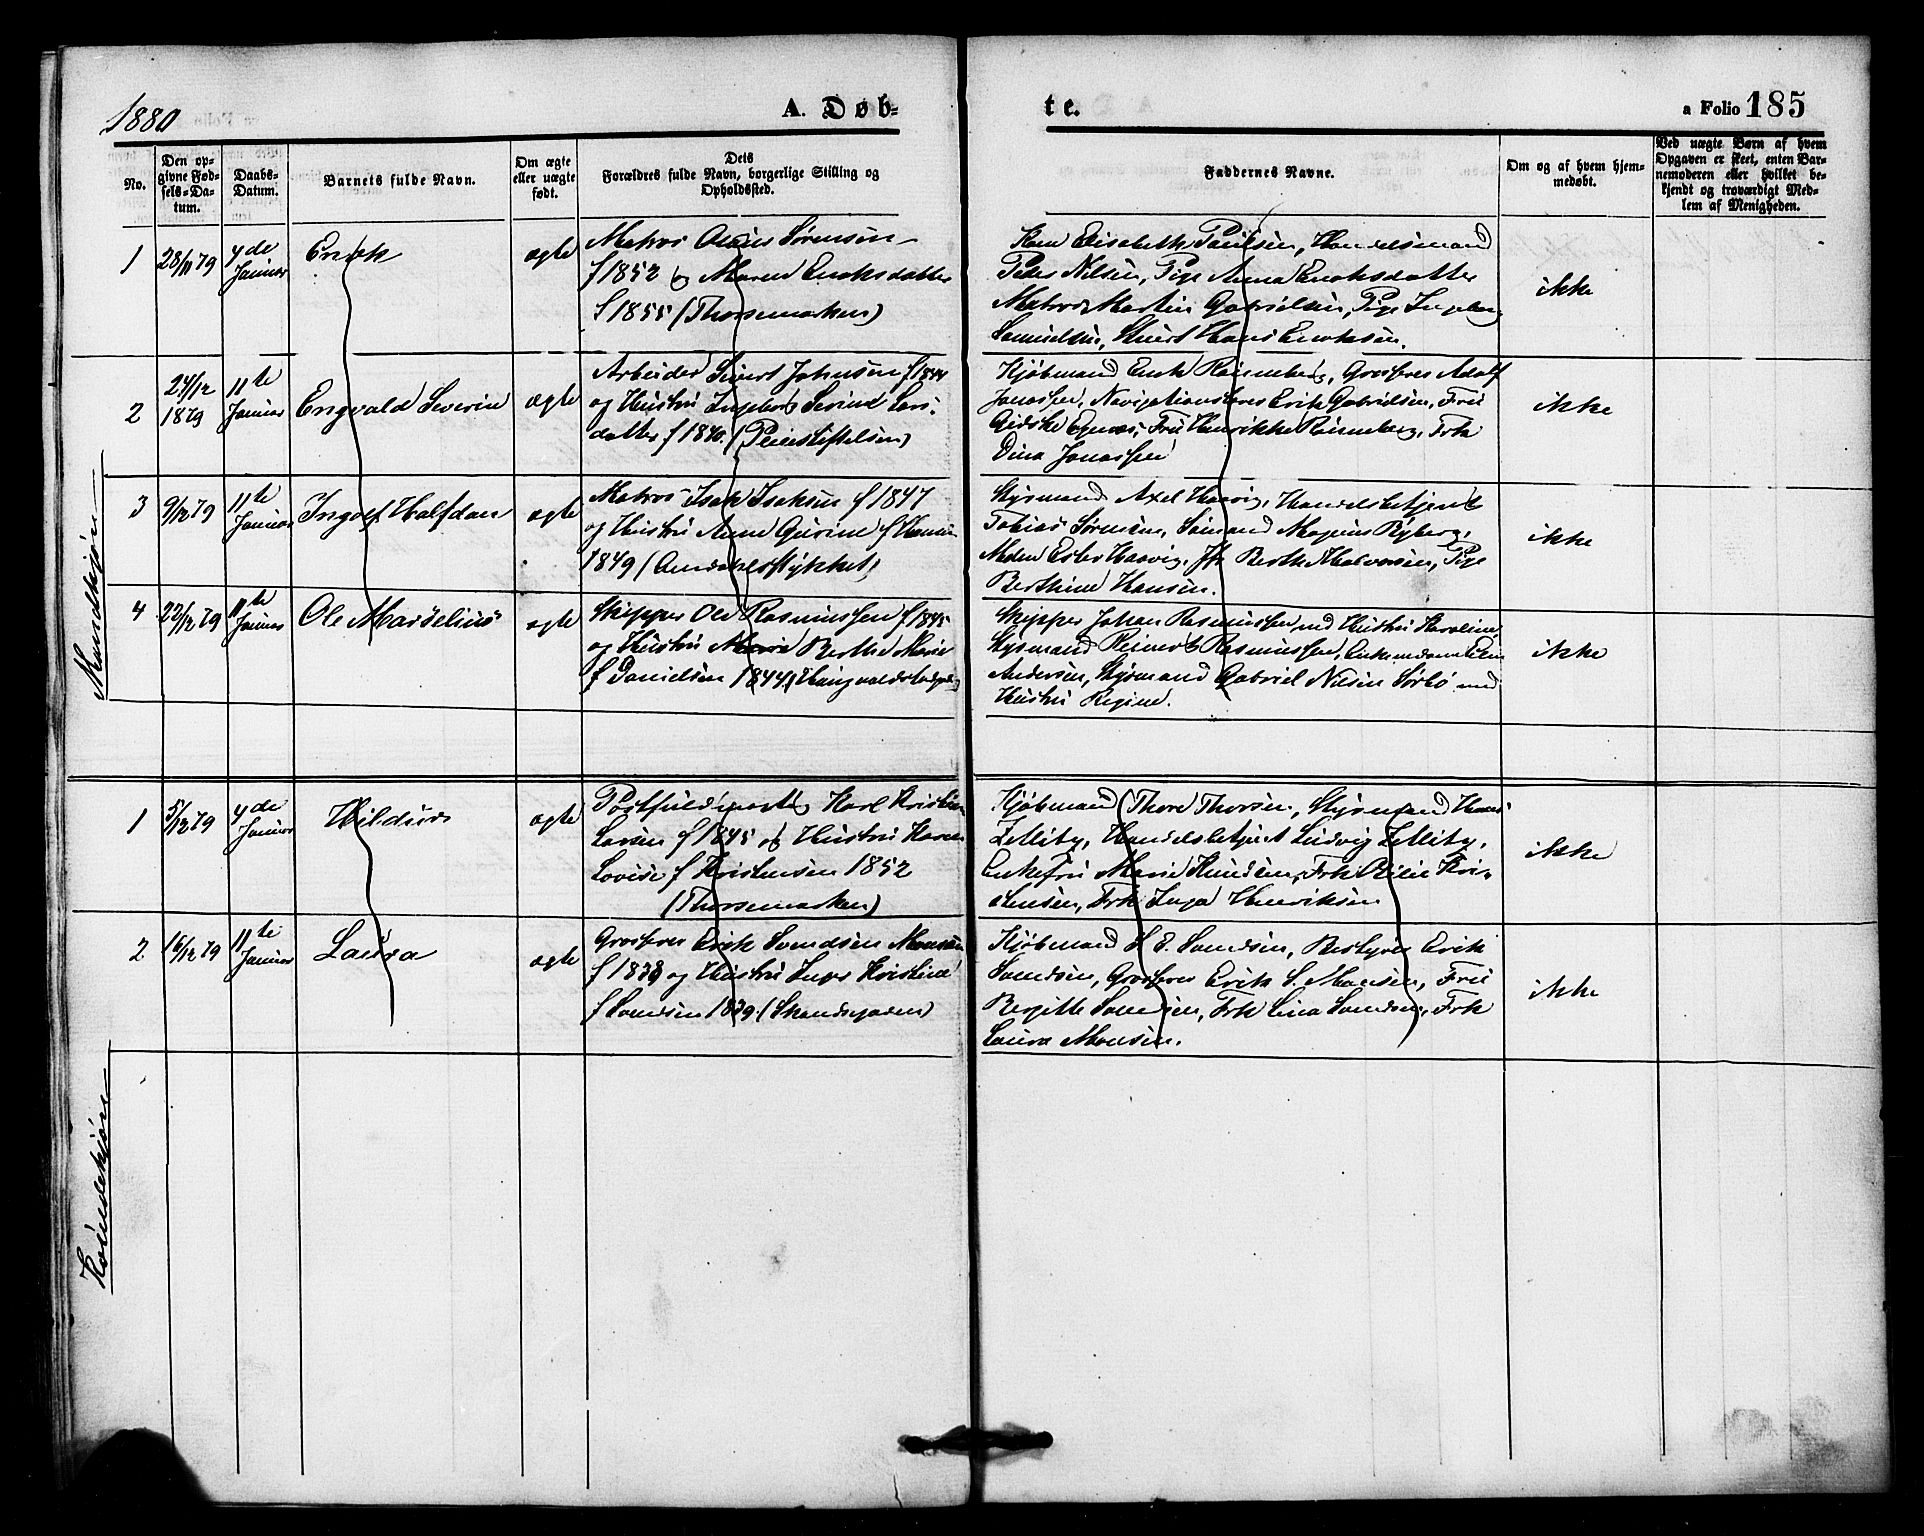 1880
A. Døb-
te.
a Folio 185
No.
Den op-
givne Fød-
sels-Da-
tum.
Daabs-
Datum.
Barnets fulde Navn.
Om ægte
eller uægte
født.
Dets
Forældres fulde Navn, borgerlige Stilling og
Opholdssted.
Faddernes Navne.
Om og af hvem hjem-
medøbt.
Ved uægte Børn af hvem
Opgaven er skeet, enten Bar-
nemoderen eller hvilket be-
kjendt og troværdigt Med-
lem af Menigheden.
Mandkjøn
1
28/11 79
4de
Januar
Enok
ægte
Matros Olaus Sørensen
f 1852 og Maren Enoksdatter
f 1855 (Thorsemarken)
Kone Elisabeth Paulsen, Handelsmand
Peder Nilsen, Pige Anna Enoksdatter
Matros Martin Gabrielsen, Pige Ingeborg
Samuelsen, Stuert Hans Enoksen.
ikke
2
24/12
1879
11te
Januar
Engvald Severin
ægte
Arbeider Sivert Johnsen f 1844
og Hustru Ingeborg Serine Lars-
datter f 1840. (Peierstiftelsen)
Kjøbmand Enok Rønneberg, Grosserer Adolf
Jonassen, Navigationslærer Erik Gabrielsen, Fru
Gidske Egenæs, Fru Henrikke Rønneberg, Frk
Dina Jonassen
ikke
3
9/12 79
11te
Januar
Ingolf Halfdan
ægte
Matros Isak Isaksen f 1847
og Hustru Anne Gurine f Hansen
1849 (Arendalsstykket)
Styrmand Axel Haavig, Handelsbetjent
Tobias Sørensen, Sømand Magnus Ryberg,
Madm Ester Haavig, Jfr Berthe Halvorsen, Pige
Berthine Hansen.
ikke
4
22/12 79
11te
Januar
Ole Marselius
ægte
Skipper Ole Rasmussen f 1845
og Hustru Berthe Marie
f Danielsen 1844
Skipper Johan Rasmussen med Hustru Karoline,
Styrmand Reinert Rasmussen, Enkemadame
Andersen, Styrmand Gabriel Nilsen Sørbø med
Hustru Regine.
ikke
Kvindekjøn
1
5/12 79
4de
Januar
Hildur
ægte
Postfuldmægtig Karl Kristian
Larsen f 1845 og Hustru Karen
Lovise f Kristensen 1852
(Thorsemarken)
Kjøbmand Thore Thorsen, Styrmand Hans
Zetlitz, Handelsbetjent Ludvig Zetlitz,
Enkefru Marie Knudsen, Frk Kri-
stensen, Frk Inga Henriksen
ikke
2
16/12 79
11te
Januar
Laura
ægte
Grosserer Erik Svendsen Monsen
f 1838 og Hustru Inger Kristine
f Svendsen 1839. (Skandsegaden)
Kjøbmand S. E. Svendsen, Bestyrer Erik
Svendsen, Grosserer Erik S. Monsen, Fru
Birgitte Svendsen, Frk Lina Svendsen, Frk
Laura Monsen.
ikke